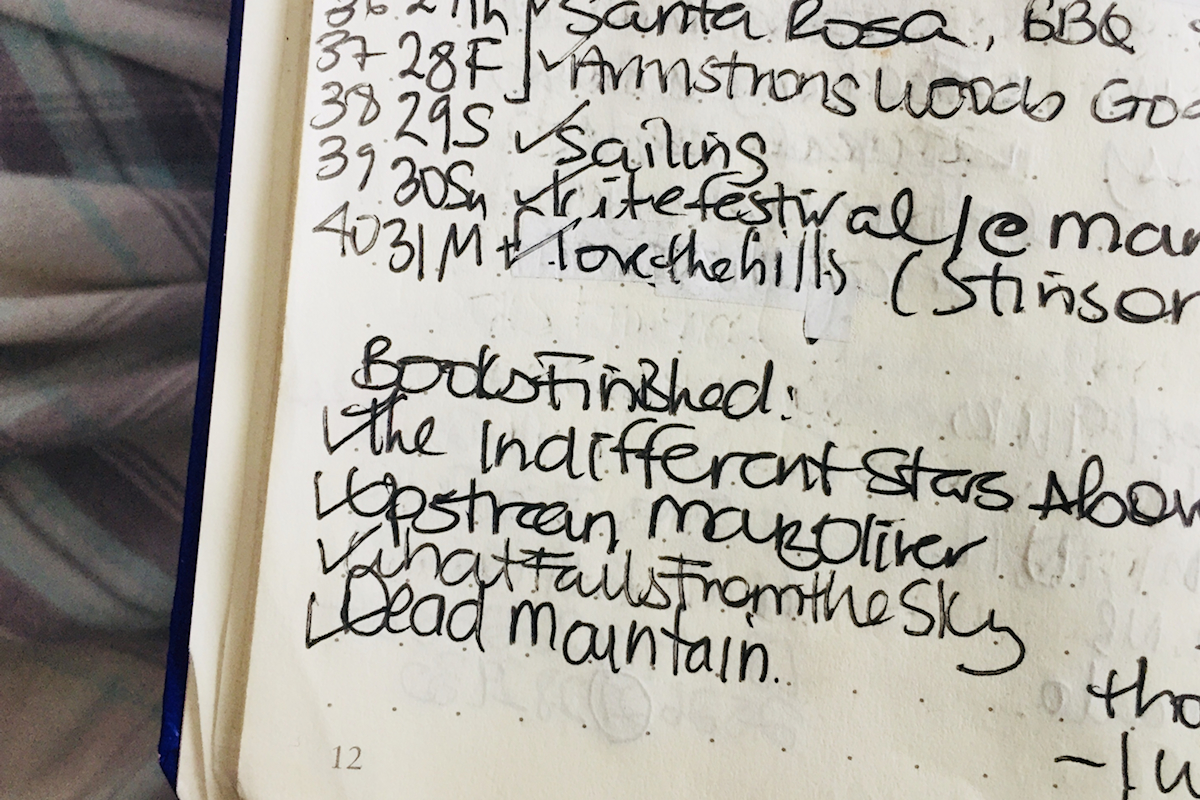 36 27Th Santa Rosa, BBQ
37 28F Armstrong Woods Goa
38 29S Sailing
39 30Sn kite festival / e mar
40 31M + love the hills (Stinson
Books Finished:
the Indifferent Stars Abov
Upstream Mary Oliver
What Falls From the Sky
Dead mountain.
tho
- I w
12